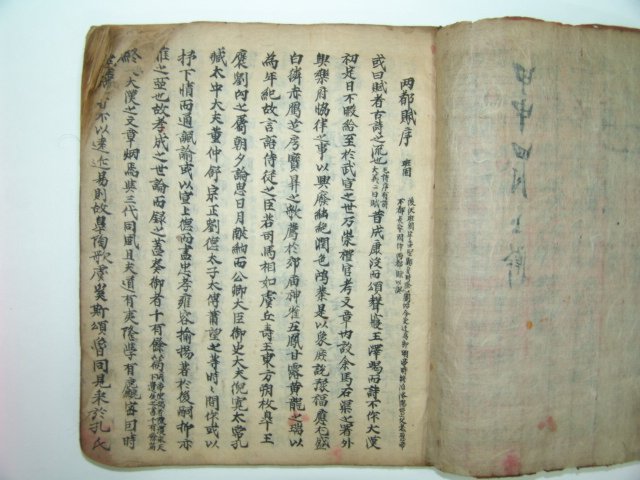 甲申四月上澣
兩都賦序 班固
或曰賦者古詩之流也 昔成康沒而頌聲寢王澤竭而詩不作大漢
初定日不暇給至於武宣之世乃崇禮官考文章內設金馬石渠之署外
興樂府協律之事以興廢繼絶潤色鴻業是以衆庶說豫福應尤盛
白麟赤鴈芝房寶鼎之歌薦於郊廟神雀五鳳甘露黃龍之瑞以
爲年紀故言語侍從之臣若司馬相如虞丘壽王東方朔枚皐王
褒劉向之屬朝夕論思日月獻納而公卿大臣御史大夫倪寬太常孔
臧太中大夫董仲舒宗正劉德太子太傅蕭望之等時時間作或以
抒下情而通諷諭或以宣上德而盡忠孝雍容揄揚著於後嗣抑亦
雅之亞也故孝成之世論而錄之蓋奏御者十有餘篇
然後大漢之文章炳焉與三代同風且夫道有夷隆學有麤密因時
不以遠近易則故皐陶歌虞奚斯頌魯同見采於孔氏